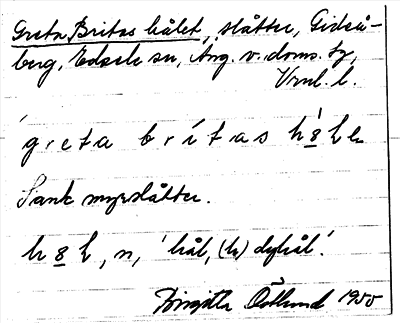 Greta Britas hålet, slåtter, Gideå-
berg, Edsele sn, Ång. v. doms. sg,
Vrml. l.
greta brítas hꞩ̲le
Sank myrslåtter.
hꞩ̲l, n, 'hål, (le) dyhål'.
Birgitta Östlund 1950